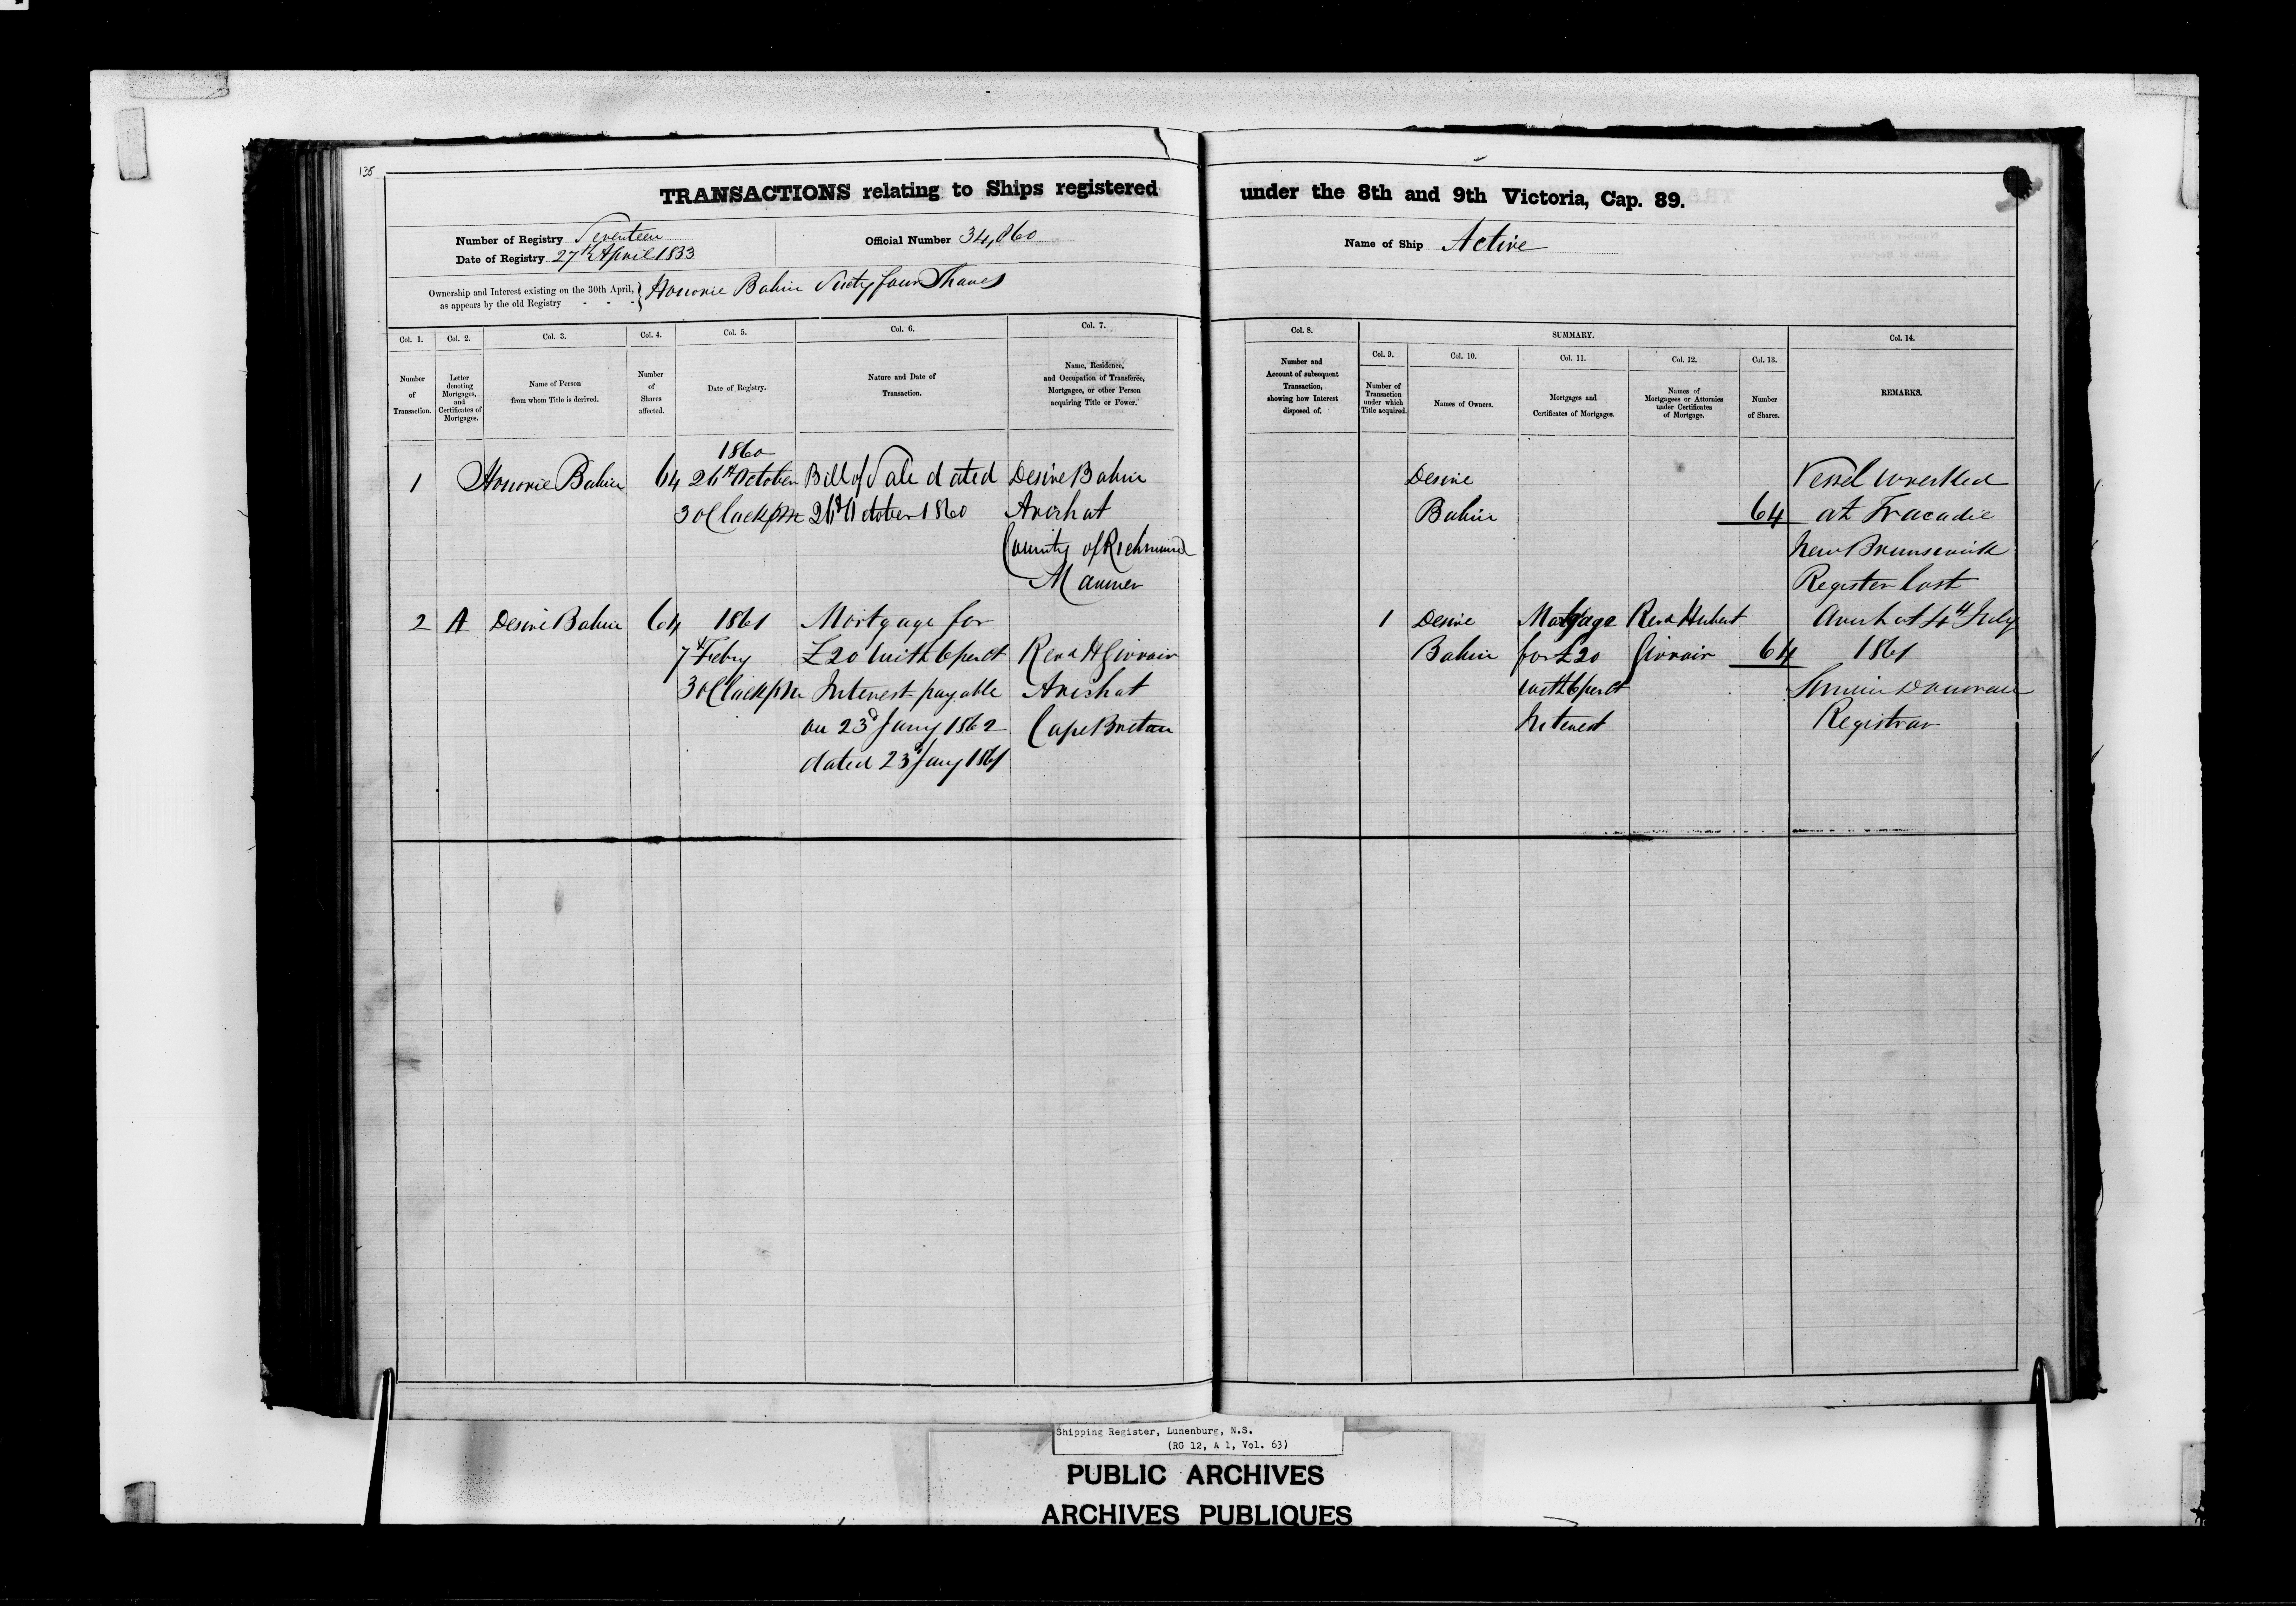 135
TRANSACTIONS relating to Ships registered under the 8th and 9th Victoria, Cap. 89.
Number of Registry Seventeen
Date of Registry 27th April 1833
Official Number 34,060
Name of Ship Active
Ownership and Interest existing on the 30th April, as appears by the old Registry - - - } Honorie Bahin Sixty four Shares
Col. 1. Number of Transaction.
Col. 2. Letter denoting Mortgages, and Certificates of Mortgages.
Col. 3. Name of Person from whom Title is derived.
Col. 4. Number of Shares affected.
Col. 5. Date of Registry.
Col. 6. Nature and Date of Transaction.
Col. 7. Name, Residence, and Occupation of Transferee, Mortgagee, or other Person acquiring Title or Power.
Col. 8. Number and Account of subsequent Transaction, showing how Interest disposed of.
SUMMARY.
Col. 9. Number of Transaction under which Title acquired.
Col. 10. Names of Owners.
Col. 11. Mortgages and Certificates of Mortgages.
Col. 12. Names of Mortgagees or Attornies under Certificates of Mortgage.
Col. 13. Number of Shares.
Col. 14. REMARKS.
1860
1 Honorie Bahin 64 26th October Bill of Sale dated Desire Bahin
3 oClock pm October 1860 Arichat
County of Richmond
Mariner
2 A Desire Bahin 64 1861 Mortgage for
7th Feby £20 with 6 per ct Revd H Girroir
3 oClock pm Interest payable Arichat
on 23d Jany 1862 Cape Breton
dated 23d Jany 1861
Desire
Bahin 64
1 Desire Mortgage Revd Hubert
Bahin for £20 Girroir 64
with 6 per ct
Interest
Vessel wrecked
at Tracadie
New Brunswick
Register lost
Arichat 4th July
1861
Registrar
Shipping Register, Lunenburg, N.S.
(RG 12, A 1, Vol. 63)
PUBLIC ARCHIVES
ARCHIVES PUBLIQUES